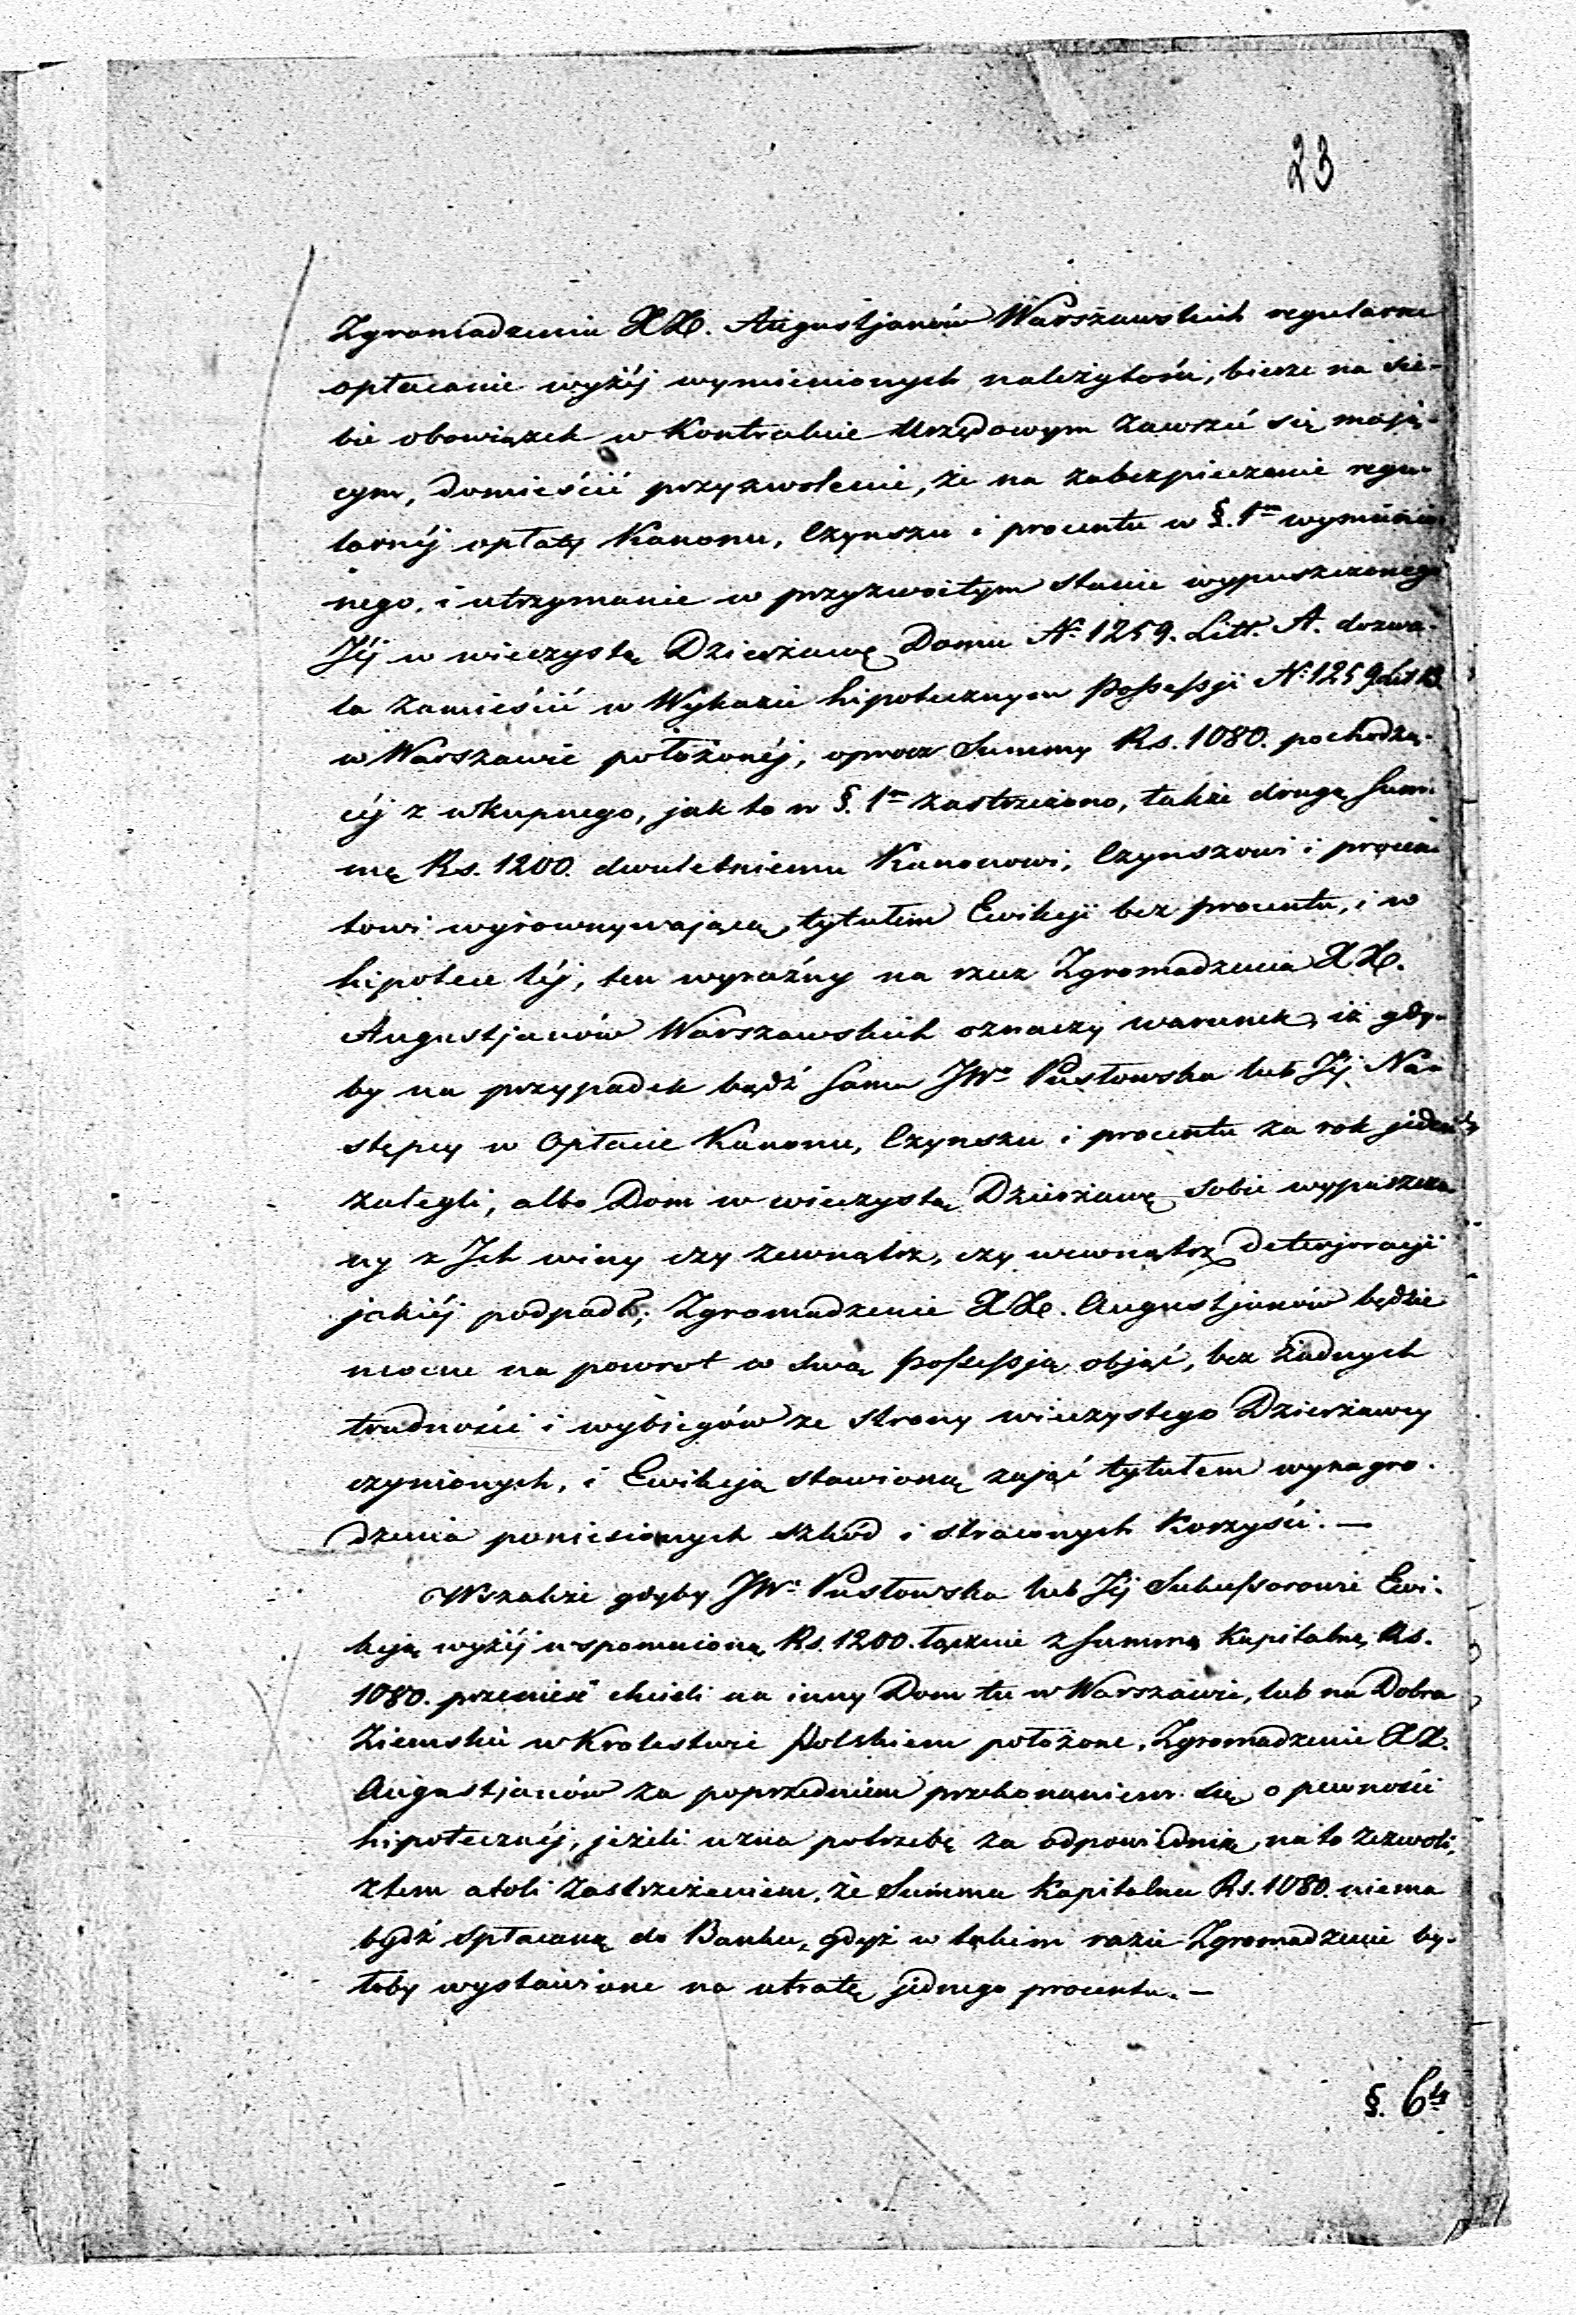 23
Zgromadzenia XX. Augustjanów Warszawskich regularne
opłacanie wyżéj wymienionych należytości, bierze na sie-
bie obowiązek w Kontrakcie Urzędowym zawrzéć się mają-
cym, domieścić przyzwolenie, że na zabezpieczenie regu-
larnéj opłaty Kanonu, Czynszu i procentu w §. 1m wymienio
nego, i utrzymanie w przyzwoitym stanie wypuszczonego
Jéj w wieczystą Dzierżawę Domu No 1259. Litt. A. dozwa-
la zamieścić w Wykazie hipotecznym Possessji No 1259 Lit B
w Warszawie położonéj, oprocz Summy Rs. 1080. pochodzą-
céj z wkupnego, jak to w §. 1m zastrzeżono, także drugą Sum-
mę Rs. 1200. dwuletniemu Kanonowi, Czynszowi i procen-
towi wyrównywającą, tytułem Ewikcji bez procentu, i w
hipotece téj, ten wyraźny na rzecz Zgromadzenia XX.
Augustjanów Warszawskich oznaczy warunek, iż gdy-
by na przypadek bądź sama JWa Pusłowska lub Jéj Na-
stępcy w Opłacie Kanonu, Czynszu i procentu za rok jeden
zalegli, albo Dom w wieczystą Dzierżawę sobie wypuszczo-
ny z Ich winy czy zewnątrz, czy wewnątrz deterjoracji
jakiéj podpadł; Zgromadzenie XX. Augustjanów będzie
mocne na powrot w swą possessją objąć, bez żadnych
trudności i wybiegów ze strony wieczystego Dzierżawcy
czynionych, i Ewikcją stawioną zająć tytułem wynagro-
dzenia poniesionych szkód i straconych Korzyści. —
Wszakże gdyby JWa Pusłowska lub Jéj Sukcessorowie Ewi-
kcją wyżéj wspomnioną Rs. 1200. łącznie z Summą Kapitalną Rs.
1080. przenieść chcieli na inny Dom tu w Warszawie, lub na Dobra
Ziemskie w Krolestwie Polskiem położone, Zgromadzenie XX.
Augustjanów za poprzedniem przekonaniem się o pewności
hipotecznéj, jeżeli uzna potrzebę za odpowiednią, na to zezwoli,
z tem atoli zastrzeżeniem, że Summa Kapitalna Rs. 1080. niema
bydź spłacaną do Banku, gdyż w takim razie Zgromadzenie by-
łoby wystawione na utratę jednego procentu. —
§. 6ty